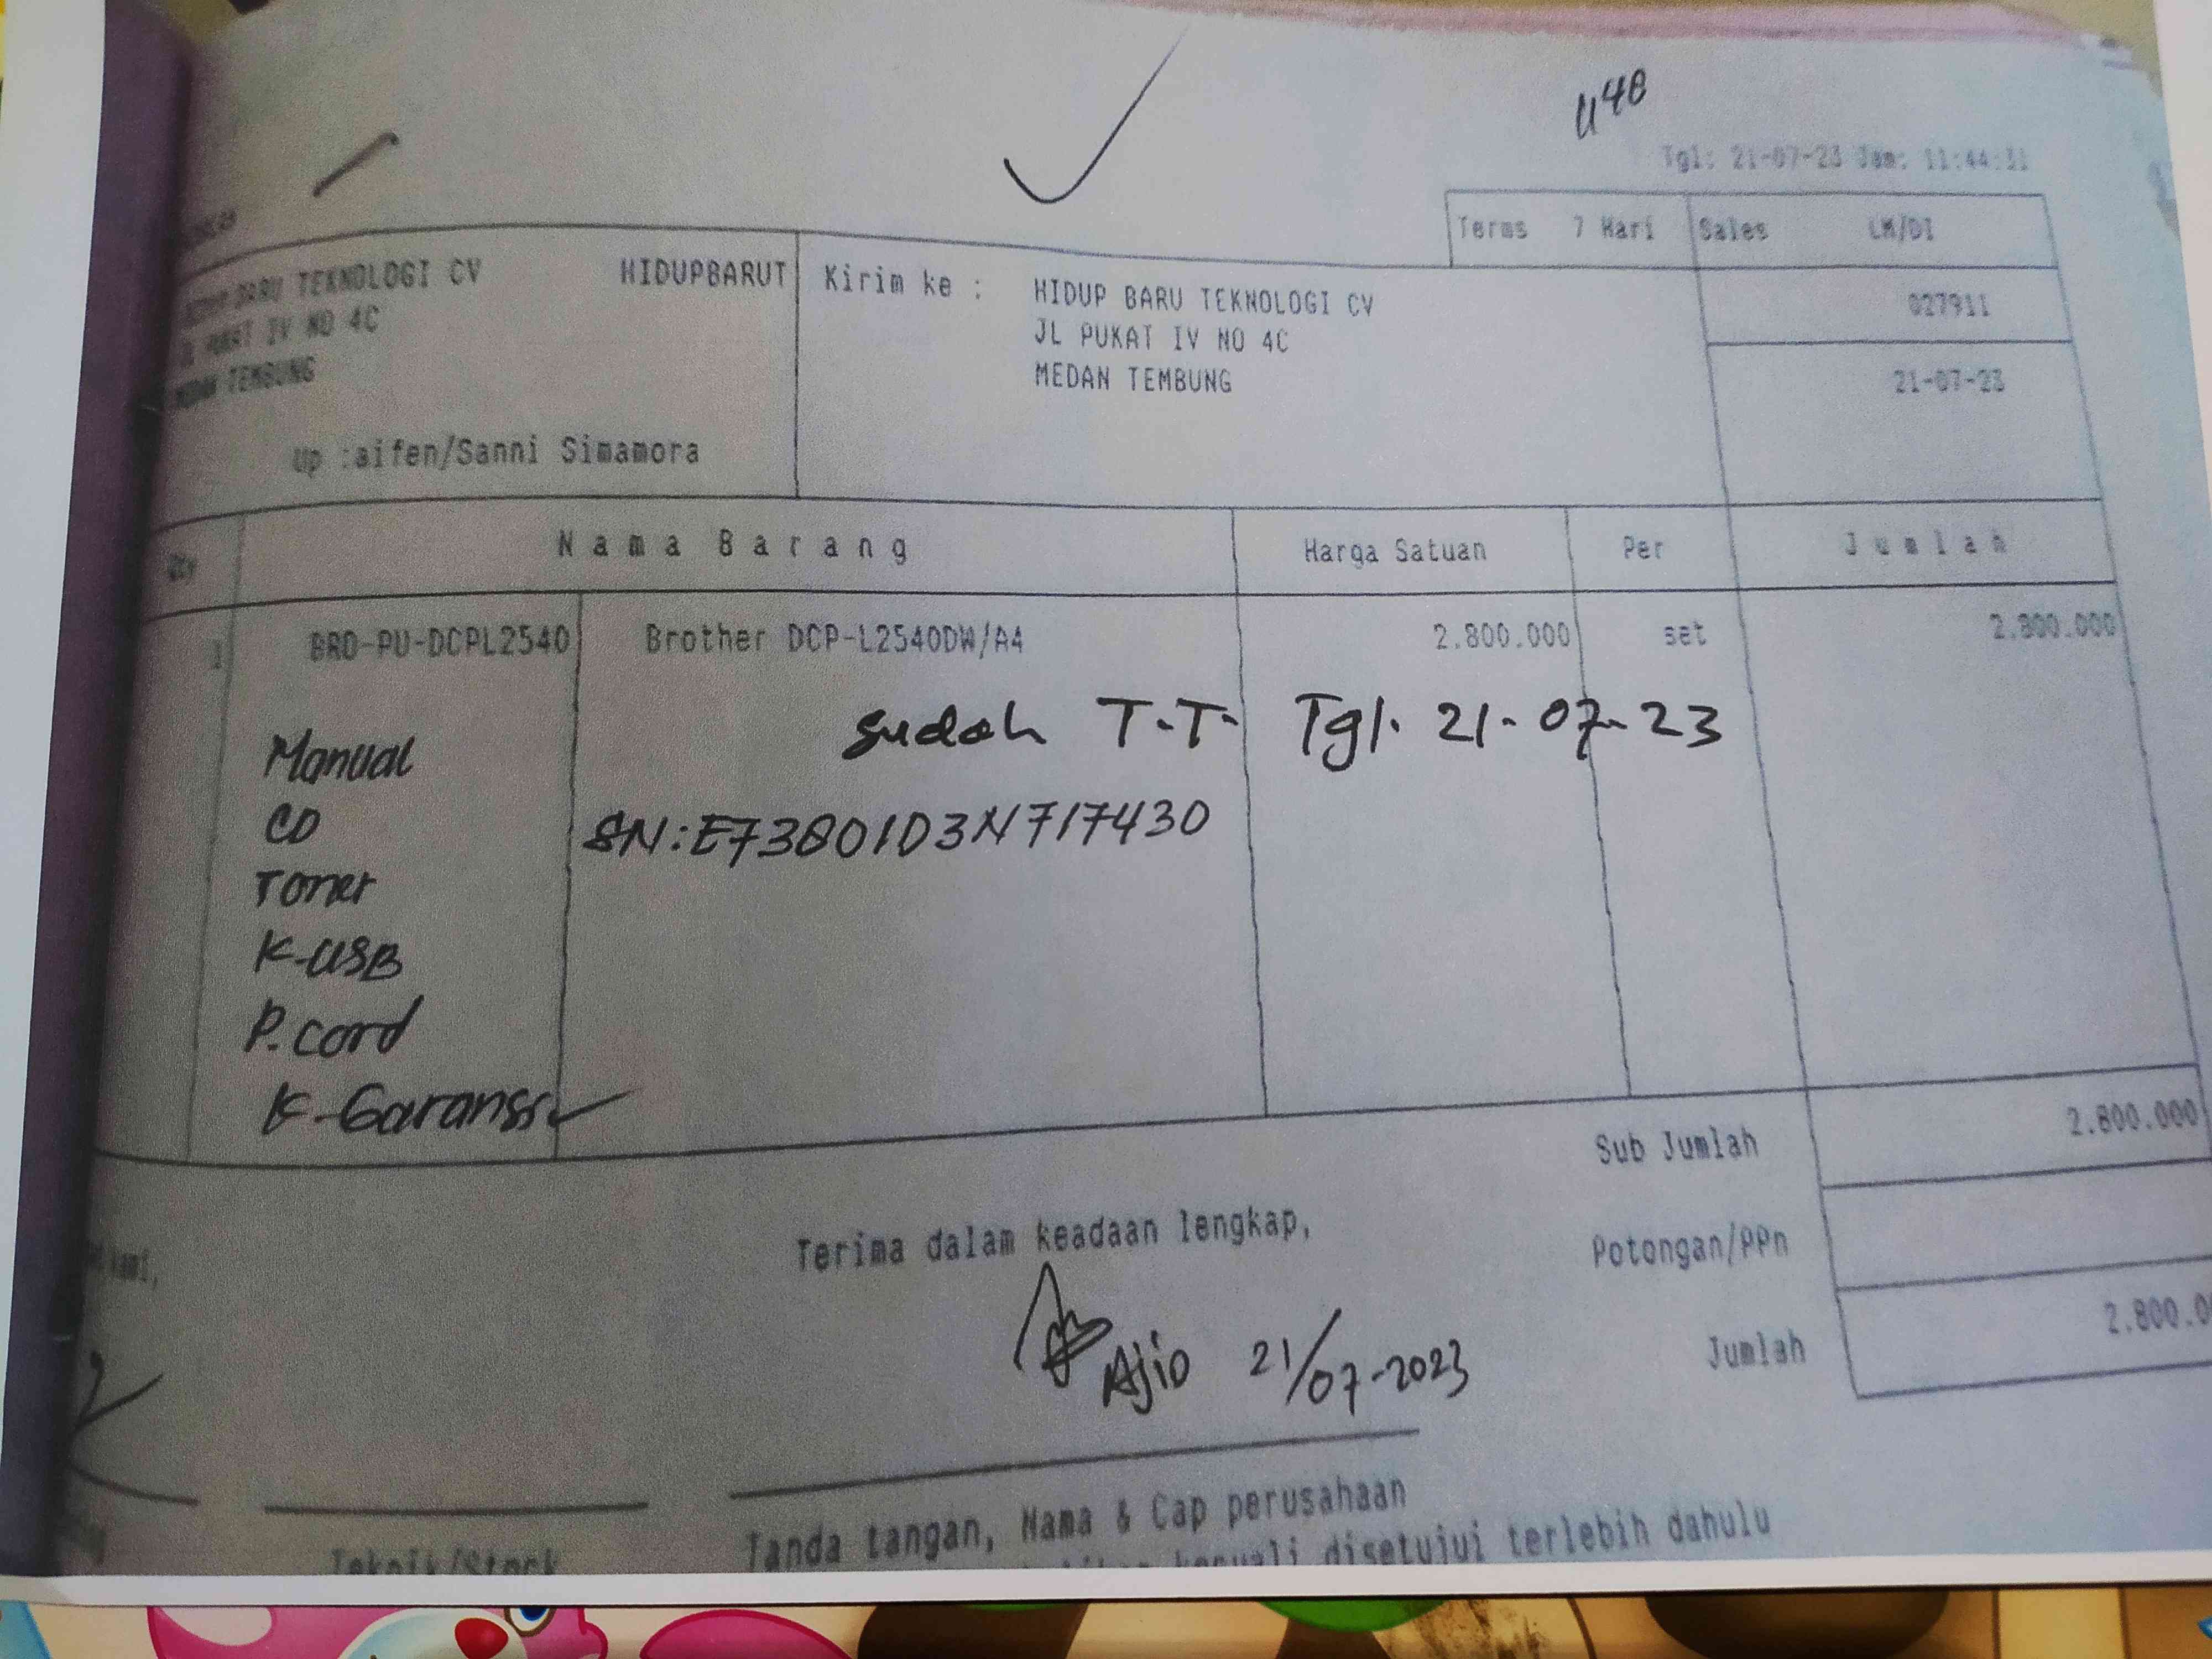 1148
Tgl: 21-07-23 Jam: 11:44:31
Terms 7 Hari Sales LM/DI
BARU TEKNOLOGI CV HIDUPBARUT
JL PUKAT IV NO 4C
MEDAN TEMBUNG
Up :aifen/Sanni Simamora
Kirim ke : HIDUP BARU TEKNOLOGI CV
JL PUKAT IV NO 4C
MEDAN TEMBUNG
027911
21-07-23
Qty Nama Barang Harga Satuan Per Jumlah
1 BRO-PU-DCPL2540 Brother DCP-L2540DW/A4 2.800.000 set 2.800.000
Sudah T.T. Tgl. 21-07-23
Manual
CD
SN:E73801D3N717430
Toner
K-USB
P.cord
K-Garansi
Sub Jumlah 2.800.000
Terima dalam keadaan lengkap,
Potongan/PPn
kami,
Jumlah 2.800.0
Ajio 21/07-2023
Tanda tangan, Nama & Cap perusahaan
Teknik/Stock
kecuali disetujui terlebih dahulu